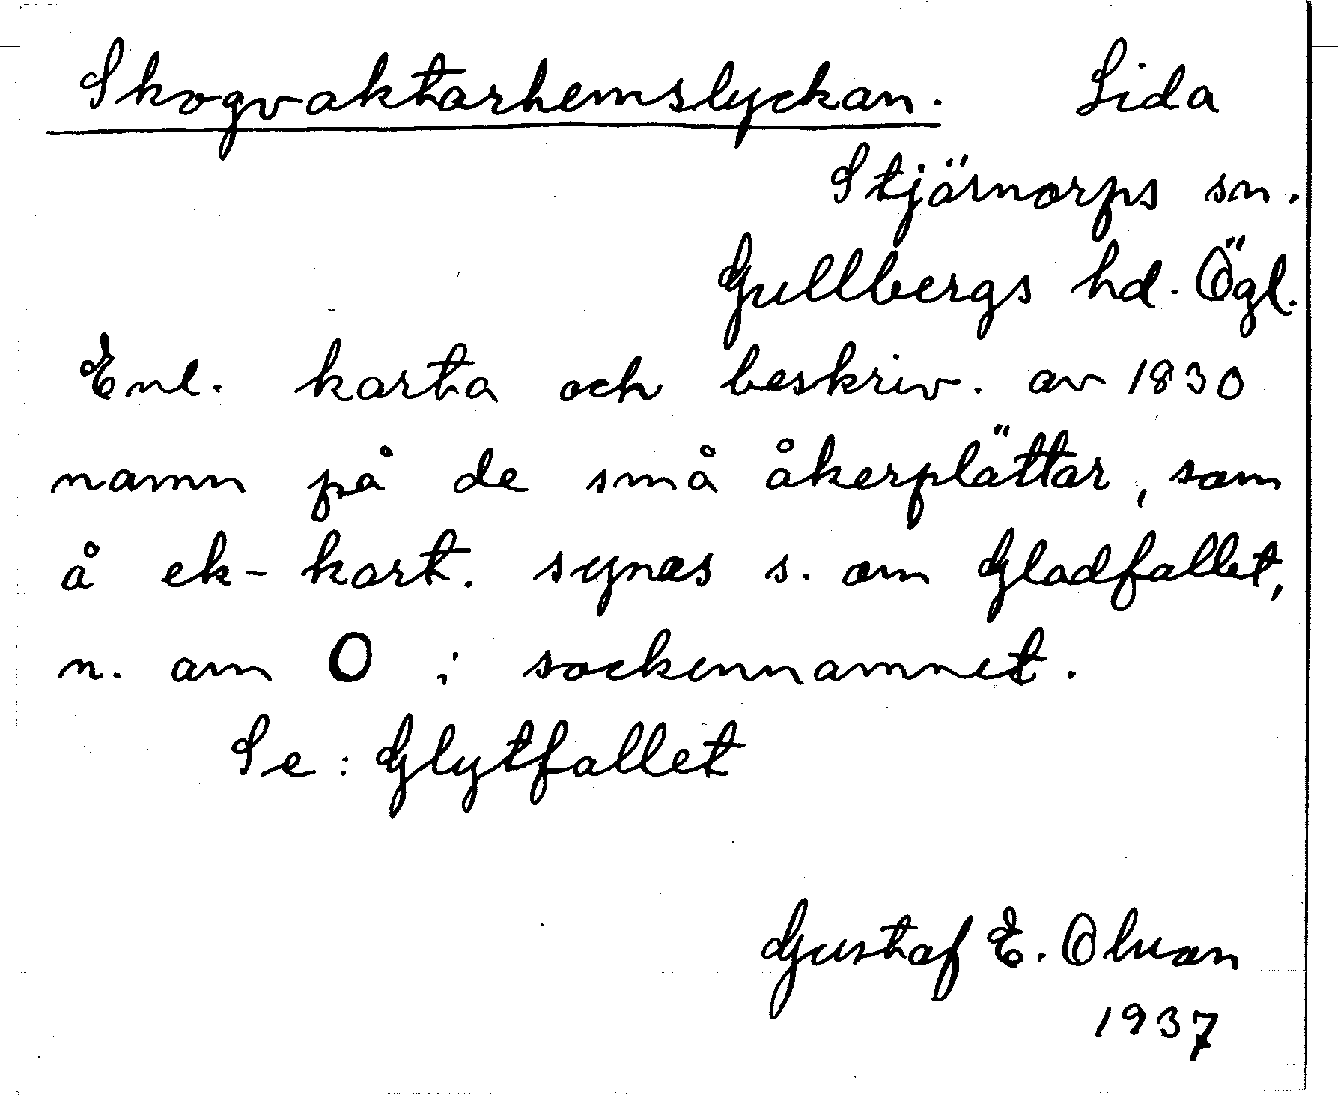 Skogvaktarhemslyckan. Lida
Stjärnorps sn.
Gullbergs hd. Ögl.
Enl. karta och beskriv. av 1830
namn på de små åkerplättar, som
å ek-kart. synas s. om Gladfallet,
n. om O i sockennamnet.
Se: Glytfallet
Gustaf E.
1937